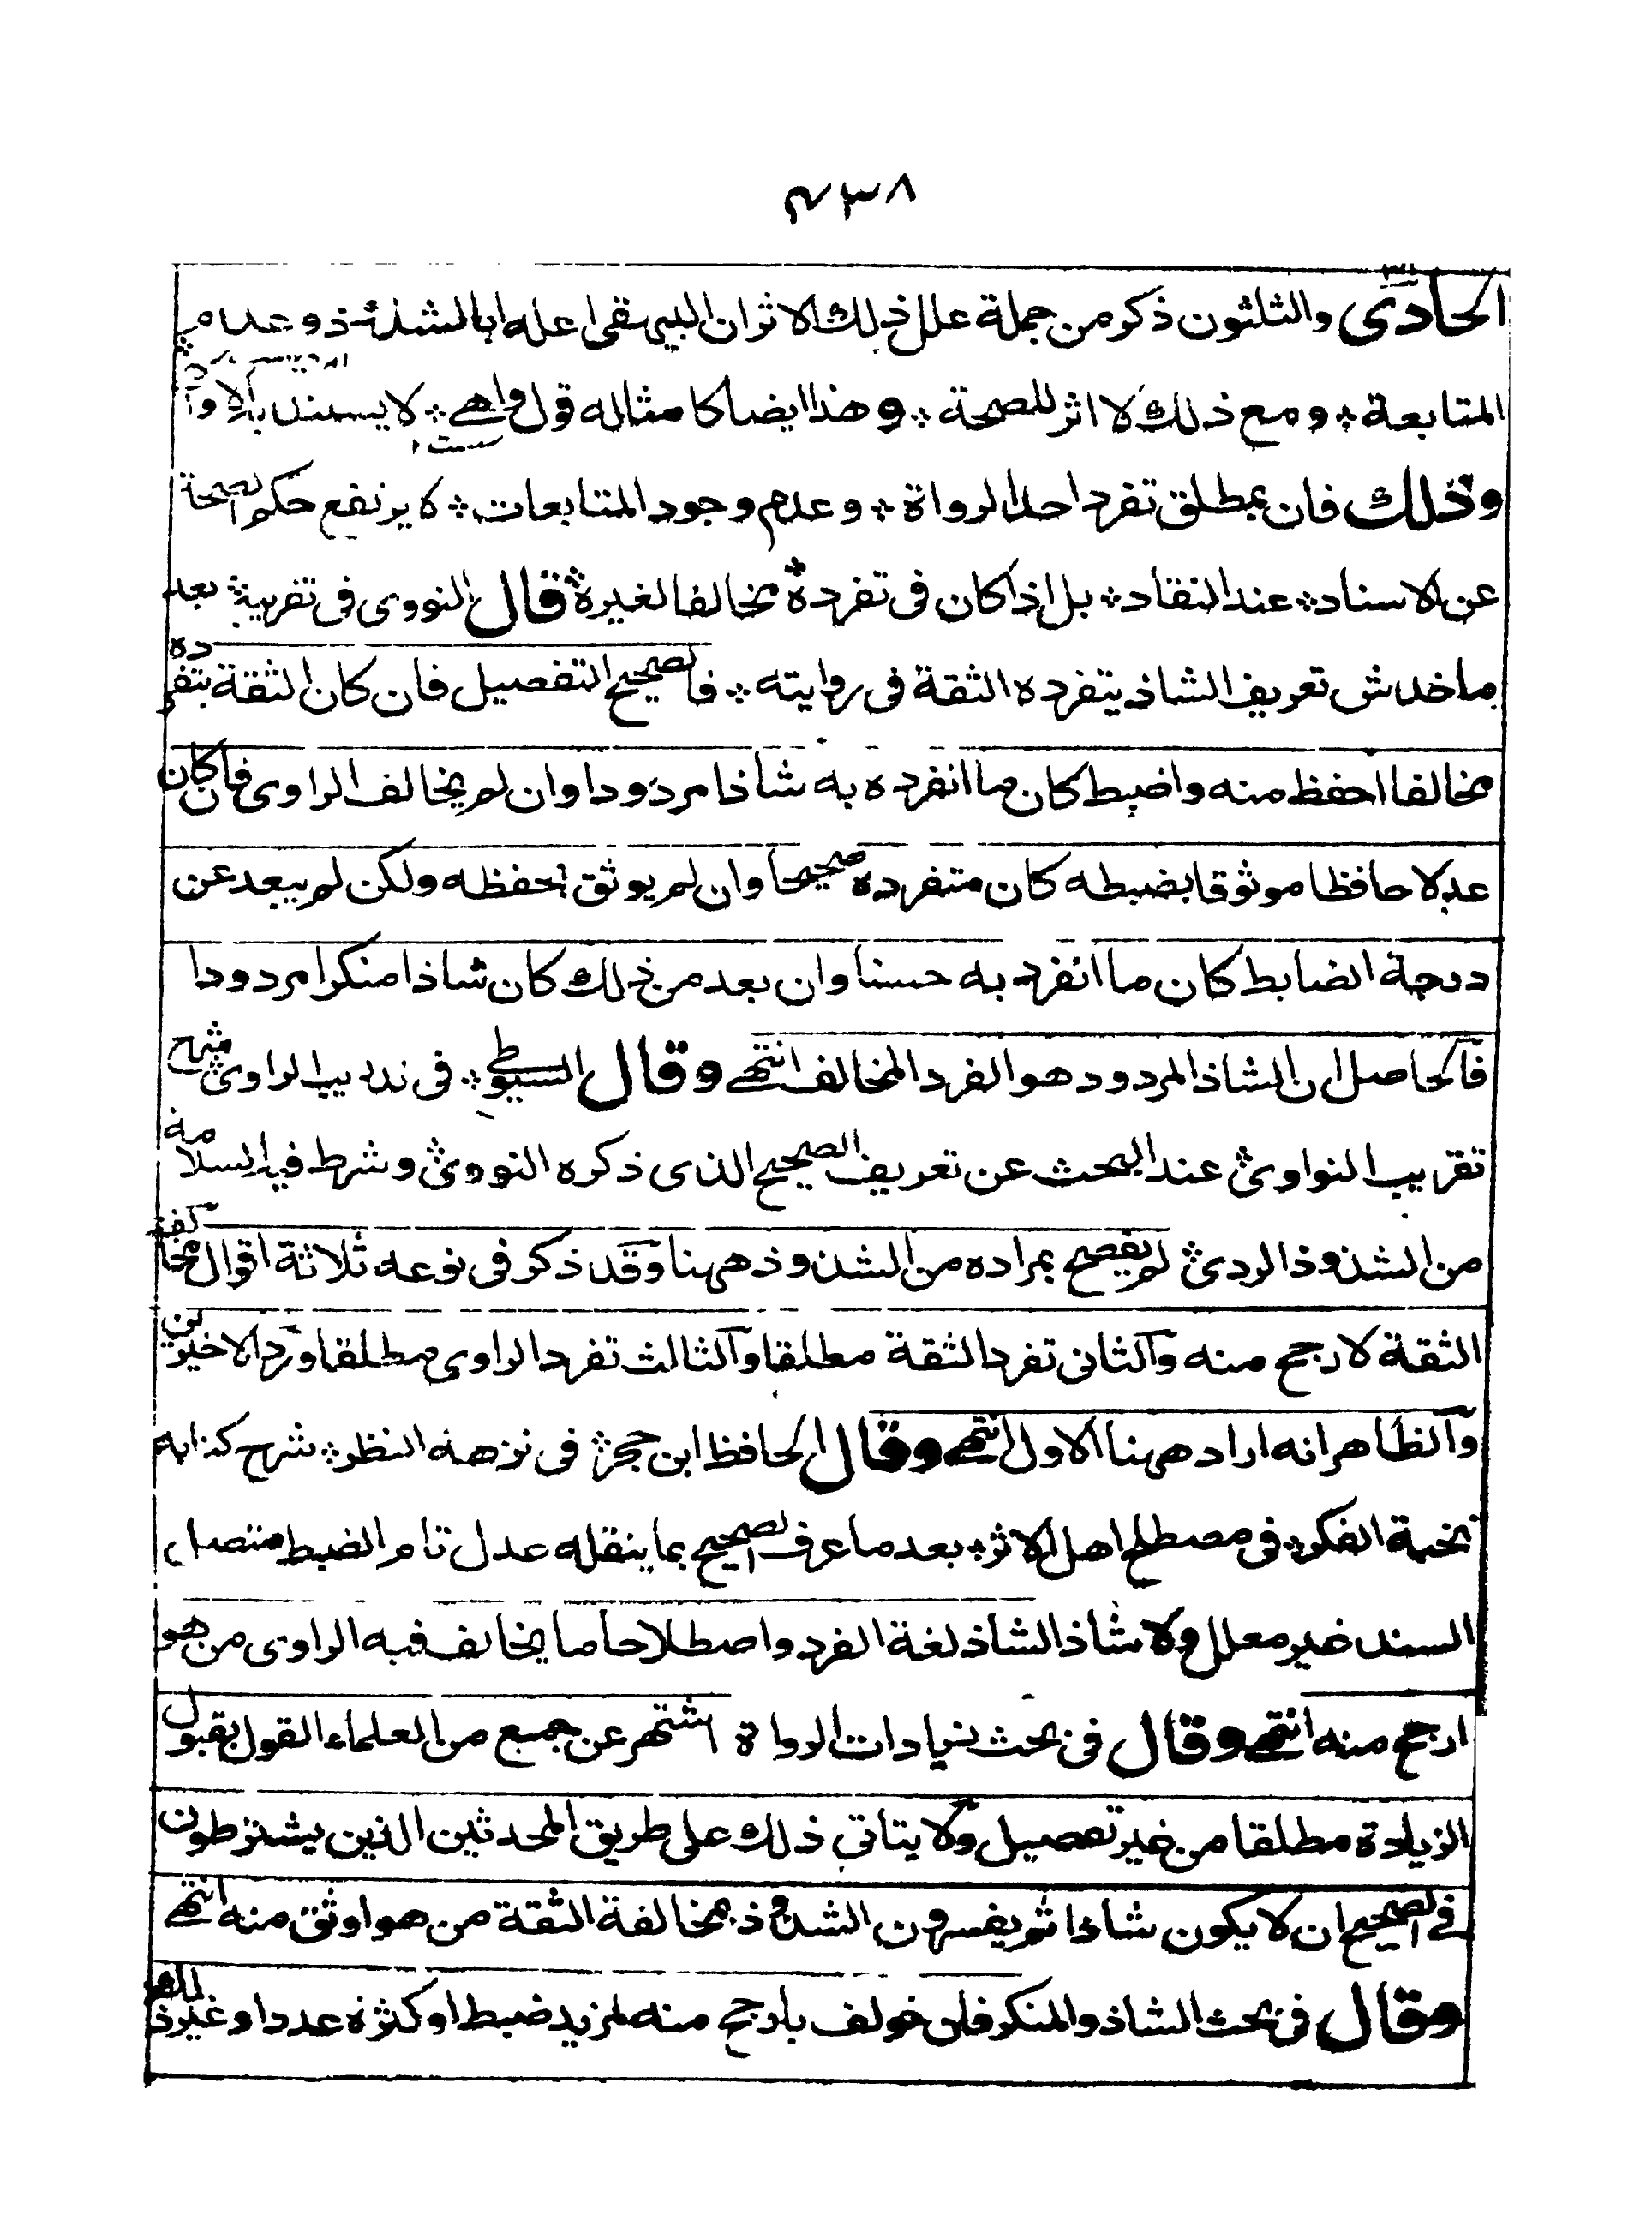 ٤٣٨
الحادي والثلثون ذكر من جملة علل ذلك الاثر ان البيهقى اعله بالشذوذ وعدم
المتابعة ۞ ومع ذلك لا اثر للصحة ۞ وهذا ايضا كامثاله قول واهے ۞ لا يستند
وذلك فان بمطلق تفرد احد الرواة ۞ وعدم وجود المتابعات ۞ لا يرتفع حكم الصحة
عن الاسناد ۞ عند النقاد ۞ بل اذا كان فى تفرده مخالفا لغيره ۞ قال النووى فى تقريبه ۞ بعد
ما خدش تعريف الشاذ بتفرده الثقة فى روايته ۞ فالصحيح التفصيل فان كان الثقة بتفرده
مخالفا احفظ منه واضبط كان ما انفرد به شاذا مردودا وان لم يخالف الراوى فان كان
عدلا حافظا موثوقا بضبطه كان متفرده صحيحا وان لم يوثق بحفظه ولكن لم يبعد عن
درجة الضابط كان ما انفرد به حسنا وان بعد من ذلك كان شاذا منكرا مردودا
فالحاصل ان الشاذ المردود هو الفرد المخالف انتهے وقال السيوطے ۞ فى تدريب الراوى ۞ شرح
تقريب النواوى ۞ عند البحث عن تعريف الصحيح الذى ذكره النووى ۞ وشرط فيه السلامة
من الشذوذ الردى ۞ لم يفصح بمراده من الشذوذ ههنا وقد ذكر فى نوعه ثلاثة اقوال مخالفة
الثقة لارجح منه والثانى تفرد الثقة مطلقا والثالث تفرد الراوى مطلقا ورد الاخيرين
والظاهر انه اراد ههنا الاول انتهے وقال الحافظ ابن حجر ۞ فى نزهة النظر ۞ شرح كتابه
نخبة الفكر ۞ فى مصطلح اهل الاثر ۞ بعد ما عرف الصحيح بما ينقله عدل تام الضبط متصل
السند غير معلل ولا شاذ الشاذ لغة الفرد واصطلاحا ما يخالف فيه الراوى من هو
ارجح منه انتهے وقال فى بحث زيادات الرواة اشتهر عن جمع من العلماء القول بقبول
الزيادة مطلقا من غير تفصيل ولا يتاتى ذلك على طريق المحدثين الذين يشترطون
فے الصحيح ان لا يكون شاذا ثم يفسرون الشذوذ بمخالفة الثقة من هو اوثق منه انتهے
وقال فى بحث الشاذ والمنكر فان خولف بارجح منه لمزيد ضبط او كثرة عدد او غير ذلك